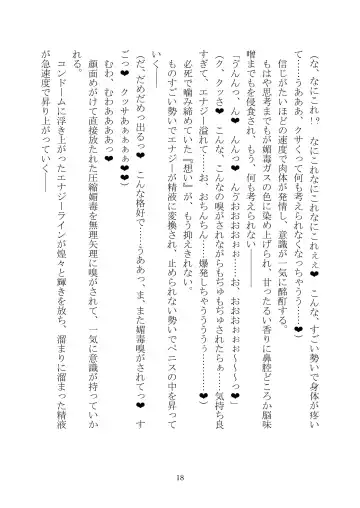 (な、なにこれ!?　なにこれなにこれなにこれぇぇ❤　こんな、すごい勢いで身体が疼い
て……うあああ、クサくって何も考えられなくなっちゃうう……❤)
　信じがたいほどの速度で肉体が発情し、意識が一気に酩酊する。
　もはや思考までもが媚毒ガスの色に染め上げられ、甘ったるい香りに鼻腔どころか脳味
噌までを侵食され、もう、何も考えられない――
「ゔんんっ、んんっ❤　んゔうおおおぉぉ…お、おおおぉぉぉ～～～っ❤」
(ク、クッさ❤　こんな、こんなの嗅がされながらもぢゅもぢゅされたらぁ……気持ち良
すぎて、エナジー溢れて……お、おちんちん……爆発しちゃうううぅぅ………❤)
　必死で噛み締めていた『想い』が、もう抑えきれない。
　ものすごい勢いでエナジーが精液に変換され、止められない勢いでペニスの中を昇って
いく――
(だ、だめだめっ出るっ❤　こんな格好で……うああっ、ま、また媚毒嗅がされてっ❤　す
ごっ❤　クッサあぁぁぁぁ❤　むわ、むわあああっ❤)
　顔面めがけて直接放たれた圧縮媚毒を無理矢理に嗅がされて、一気に意識が持っていか
れる。
　コンドームに浮き上がったエナジーラインが煌々と輝きを放ち、溜まりに溜まった精液
が急速度で昇り上がっていく――
18